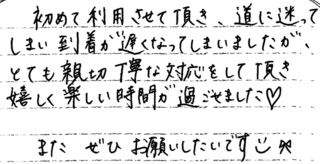 初めて利用させて頂き、道に迷って
しまい到着が遅くなってしまいましたが、
とても親切丁寧な対応をして頂き
嬉しく楽しい時間が過ごせました♡
また ぜひ お願いしたいです